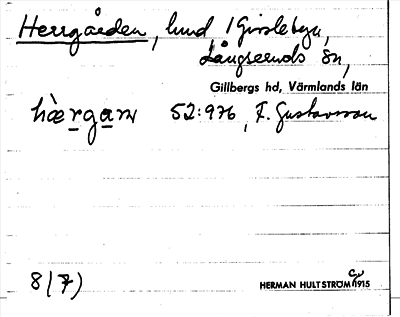 Herrgården, lund / Gissleby,
Långseruds sn,
Gillbergs hd, Värmlands län
hæ̀rgaɳ 52:976, F. Gustavsson
8 (7)
HERMAN HULTSTRÖM 1915